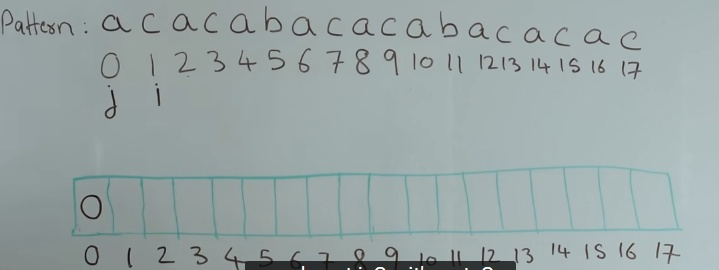 Pattern: a c a c a b a c a c a b a c a c a c
0 1 2 3 4 5 6 7 8 9 10 11 12 13 14 15 16 17
j i
0
0 1 2 3 4 5 6 7 8 9 10 11 12 13 14 15 16 17